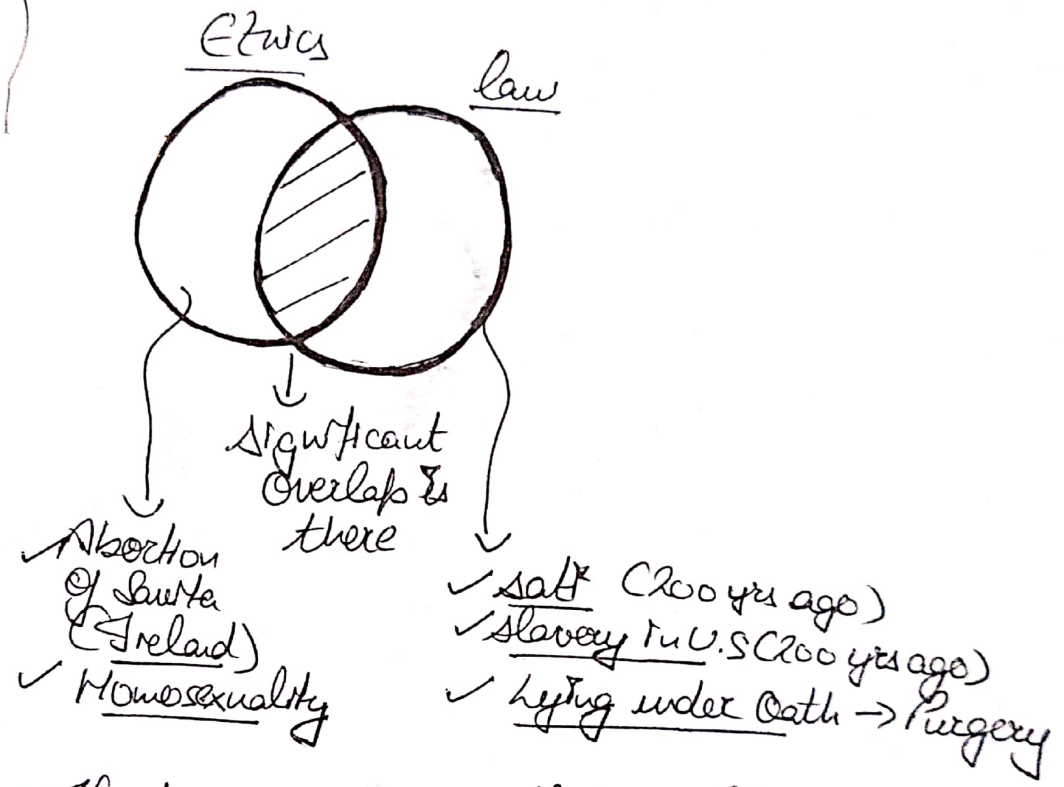 Ethics
law
Significant
Overlap is
there
Abortion
Of Savita
(Ireland)
Homosexuality
Sati (200 yrs ago)
Slavery in U.S (200 yrs ago)
Lying under Oath → Purgery